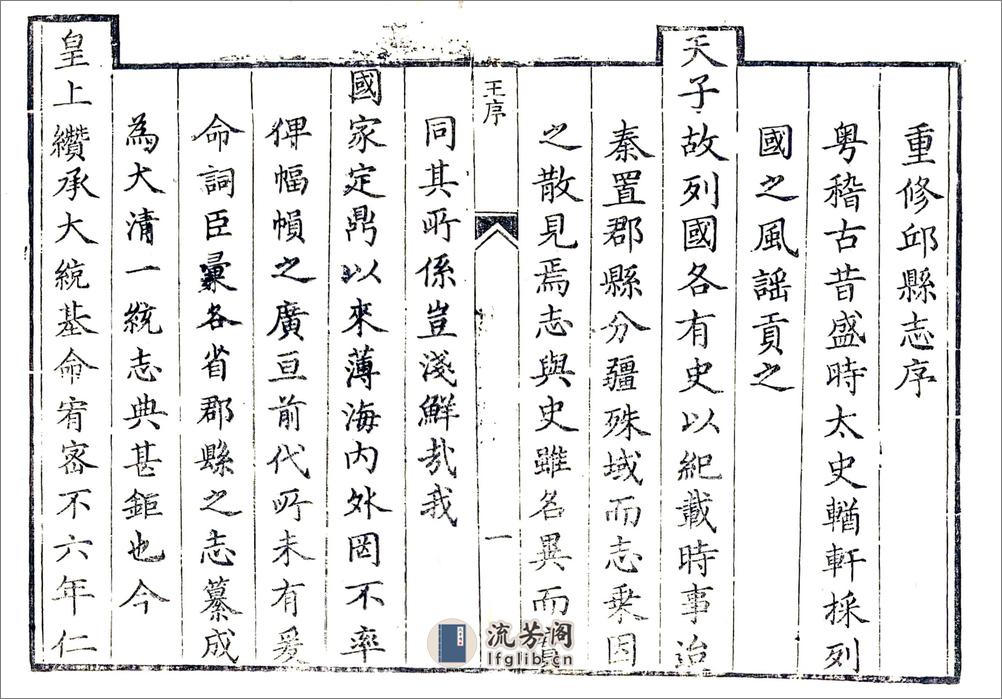 重修邱縣志序
粤稽古昔盛時太史輶軒採列
國之風謡貢之
天子故列國各有史以紀載時事迨
秦置郡縣分疆殊域而志乘因
之散見焉志與史雖名異而
王序
一
同其所係豈淺鮮哉我
國家定鼎以來薄海内外罔不率
俾幅幀之廣亘前代所未有爰
命詞臣彙各省郡縣之志纂成
為大清一統志典甚鉅也今
皇上纘承大統基命宥密不六年仁
流芳阁
lfglib.cn